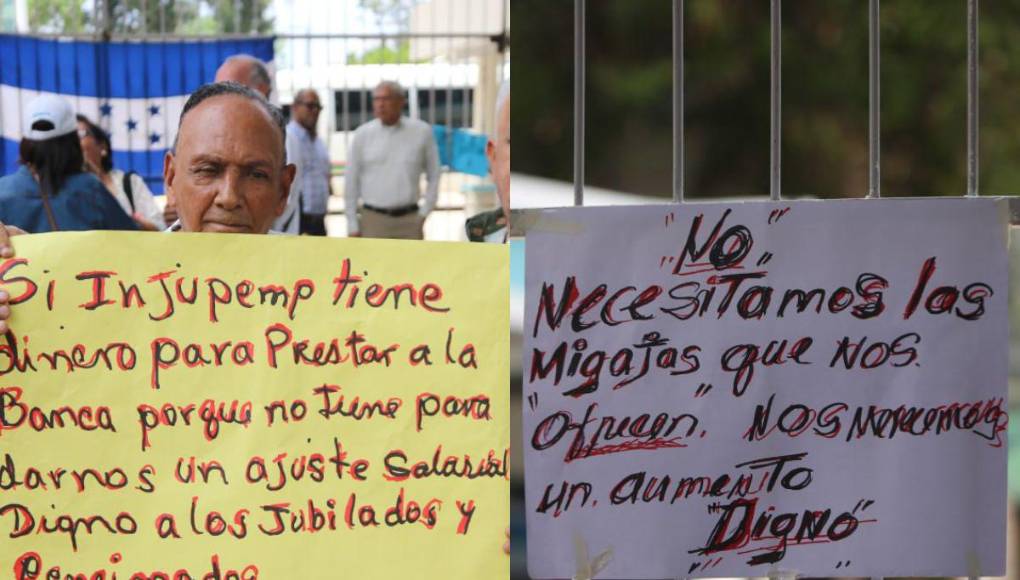 Si Injupemp tiene
dinero para Prestar a la
Banca porque no tiene para
darnos un ajuste Salarial
Digno a los Jubilados y
Pensionados
"NO"
Necesitamos las
Migajas que NOS.
"Ofrecen". NOS Merecemos
un. aumento
"Digno"